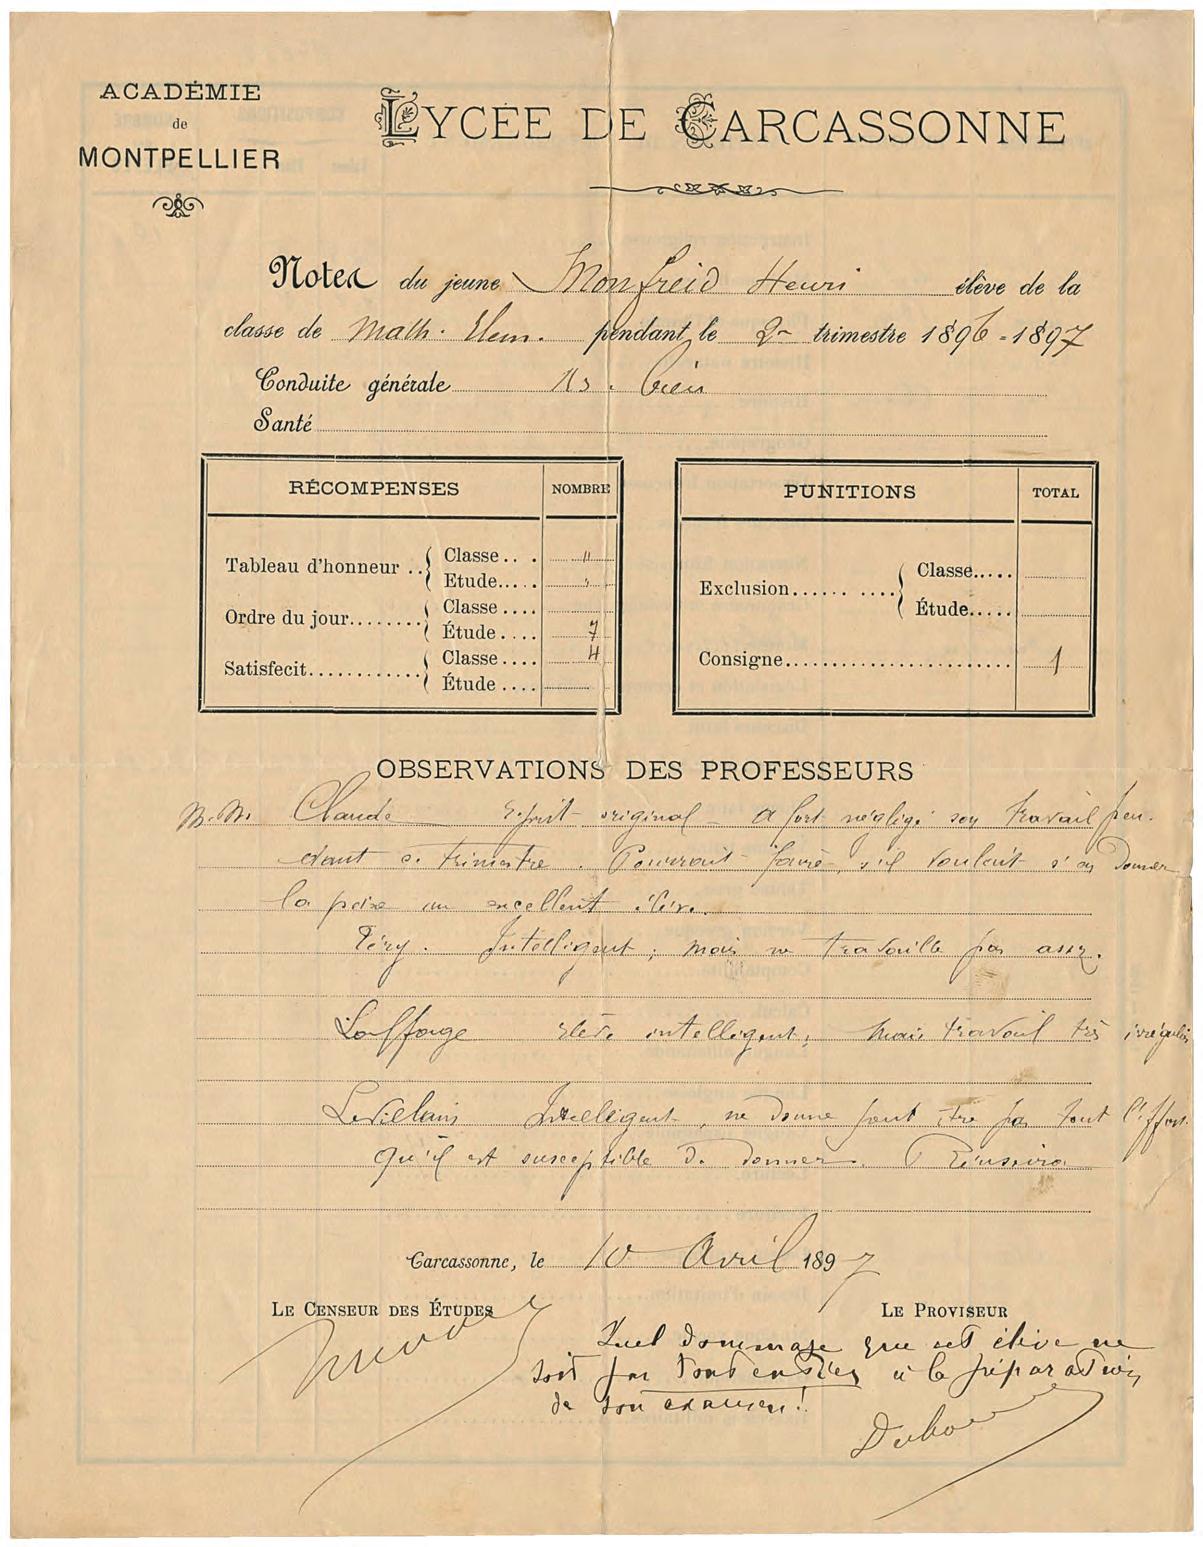 ACADÉMIE
de
MONTPELLIER
LYCÉE DE CARCASSONNE
Notes du jeune Monfreid Henri élève de la
classe de Math. Elem. pendant le 2e trimestre 1896-1897
Conduite générale As. bien
Santé
RÉCOMPENSES NOMBRE
Tableau d'honneur .. Classe.. . "
Etude..... "
Ordre du jour........ Classe....
Étude.... 7
Satisfecit............ Classe.... 4
Étude....
PUNITIONS TOTAL
Exclusion...... .... Classe.....
Étude.....
Consigne........................ 1
OBSERVATIONS DES PROFESSEURS
M.M. Claude Esprit original - A fort négligé son travail pen-
dant ce trimestre. Pourrait faire, s'il voulait s'en donner
la peine un excellent élève.
Péry. Intelligent; mais ne travaille pas assez.
Laffage Elève intelligent, mais travail très irrégulier
Levillain Intelligent, ne donne peut être pas tout l'effort
qu'il est susceptible de donner. Réussira
Carcassonne, le 10 Avril 1897
LE CENSEUR DES ÉTUDES
LE PROVISEUR
Quel dommage que cet élève ne
soit pas tout entier à la préparation
de son examen!